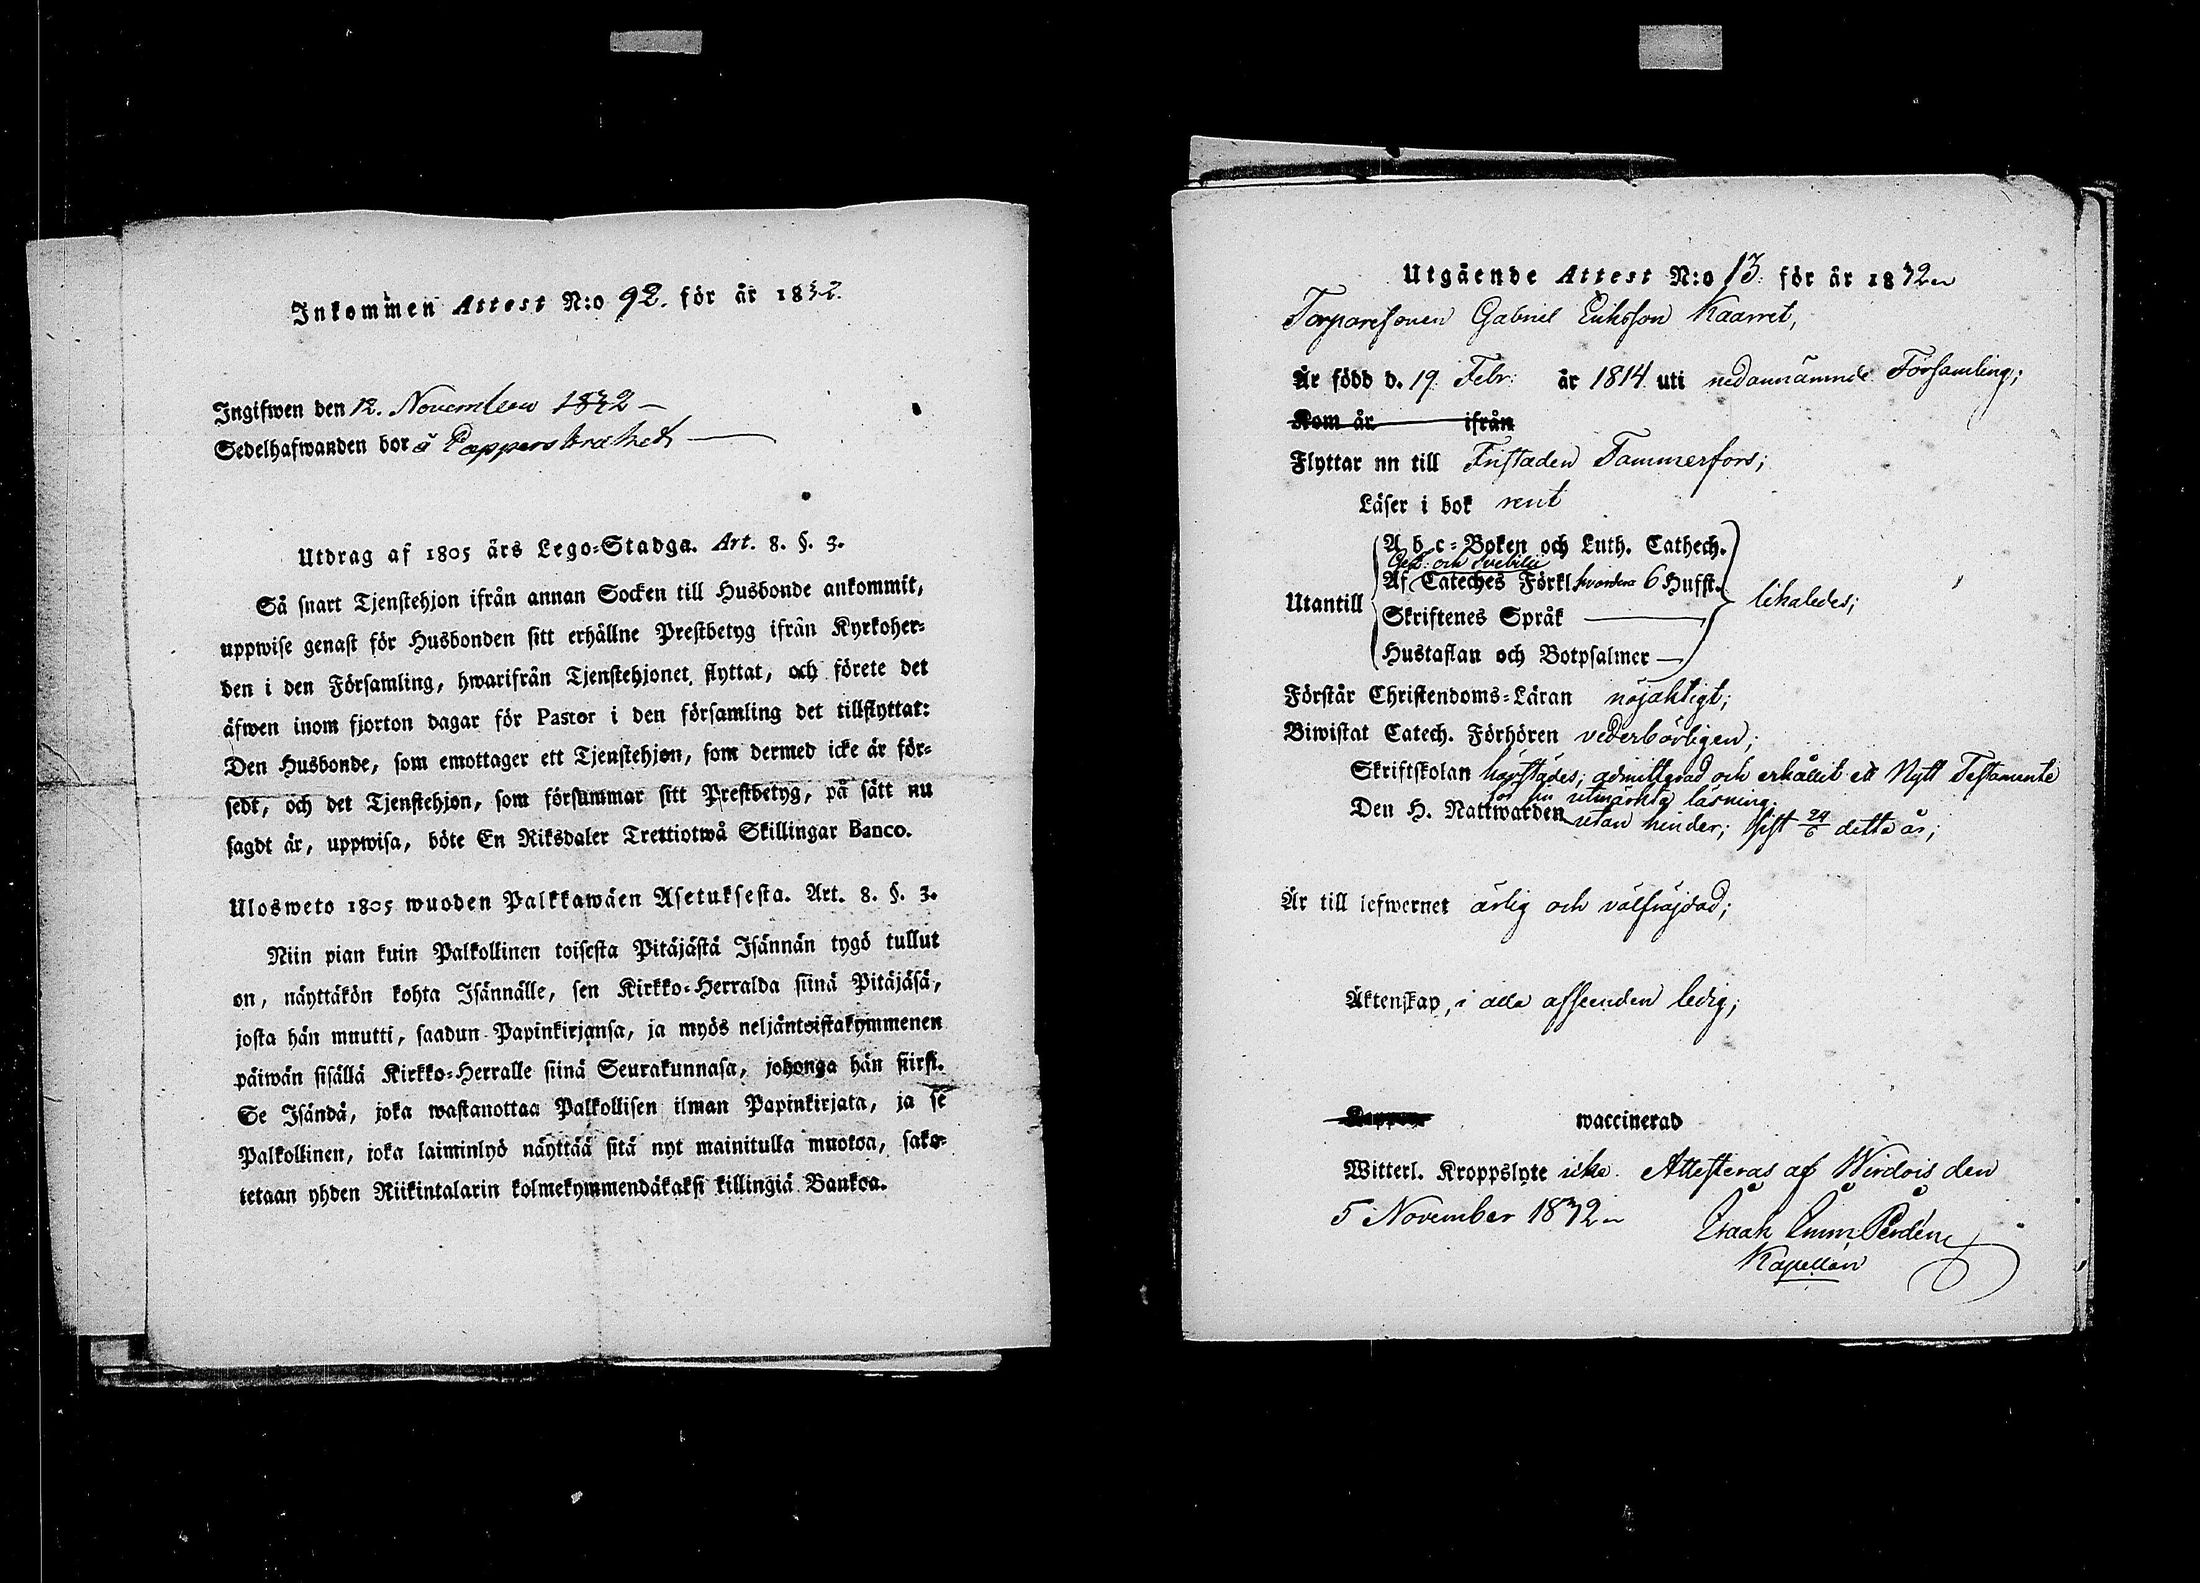 Inkommen Attest N:o 92. för år 1832.
Ingifwen den 12. November 1832
Sedelhafwanden bor å Pappersbruket
Utdrag af 1805 års Lego-Stadga. Art. 8. §. 3.
Så snart Tjenstehjon ifrån annan Socken till Husbonde ankommit,
uppwise genast för Husbonden sitt erhållne Prestbetyg ifrån Kyrkoher-
den i den Församling, hwarifrån Tjenstehjonet flyttat, och förete det
äfwen inom fjorton dagar för Pastor i den församling det tillflyttat:
Den Husbonde, som emottager ett Tjenstehjon, som dermed icke är för-
sedt, och det Tjenstehjon, som försummar sitt Prestbetyg, på sätt nu
sagdt är, uppwisa, böte En Riksdaler Trettiotwå Skillingar Banco.
Ulosweto 1805 wuoden Palkkawäen Asetuksesta. Art. 8. §. 3.
Niin pian kuin Palkollinen toisesta Pitäjästä Isännän tygö tullut
on, näyttäkön kohta Isännälle, sen Kirkko-Herralda siinä Pitäjäsä,
josta hän muutti, saadun Papinkirjansa, ja myös neljäntoistakymmenen
päiwän sisällä Kirkko-Herralle siinä Seurakunnasa, johonga hän siirsi.
Se Isändä, joka wastanottaa Palkollisen ilman Papinkirjata, ja se
Palkollinen, joka laiminlyö näyttää sitä nyt mainitulla muotoa, sako-
tetaan yhden Riikintalarin kolmekymmendäkaksi killingiä Bankoa.
Utgående Attest N:o 13. för år 1832
Torparesonen Gabriel Eriksson Kaarret,
Är född d. 19. Febr: år 1814 uti nedannämnde Församling;
Kom år ifrån
Flyttar nn till Fristaden Tammerfors;
Läser i bok rent
A b c-Boken och Luth. Cathech.
Gez: och Svebilii
Af Cateches Förkl. hvardera 6 Hufst.
Utantill likaledes;
Skriftenes Språk
Hustaflan och Botpsalmer
Förstår Christendoms-Läran nöjaktigt;
Biwistat Catech. Förhören vederbörligen;
Skriftskolan härstädes; admitterad och erhållit ett Nytt Testamente
för sin utmärkta läsning.
Den H. Nattwarden utan hinder; sist 24/6 detta år;
Är till lefwernet ärlig och välfräjdad;
Äktenskap, i alla afseenden ledig;
Koppor waccinerad
Witterl. Kroppslyte icke. Attesteras af Wirdois den
5 November 1832
Isaak Emm:
Kapellan